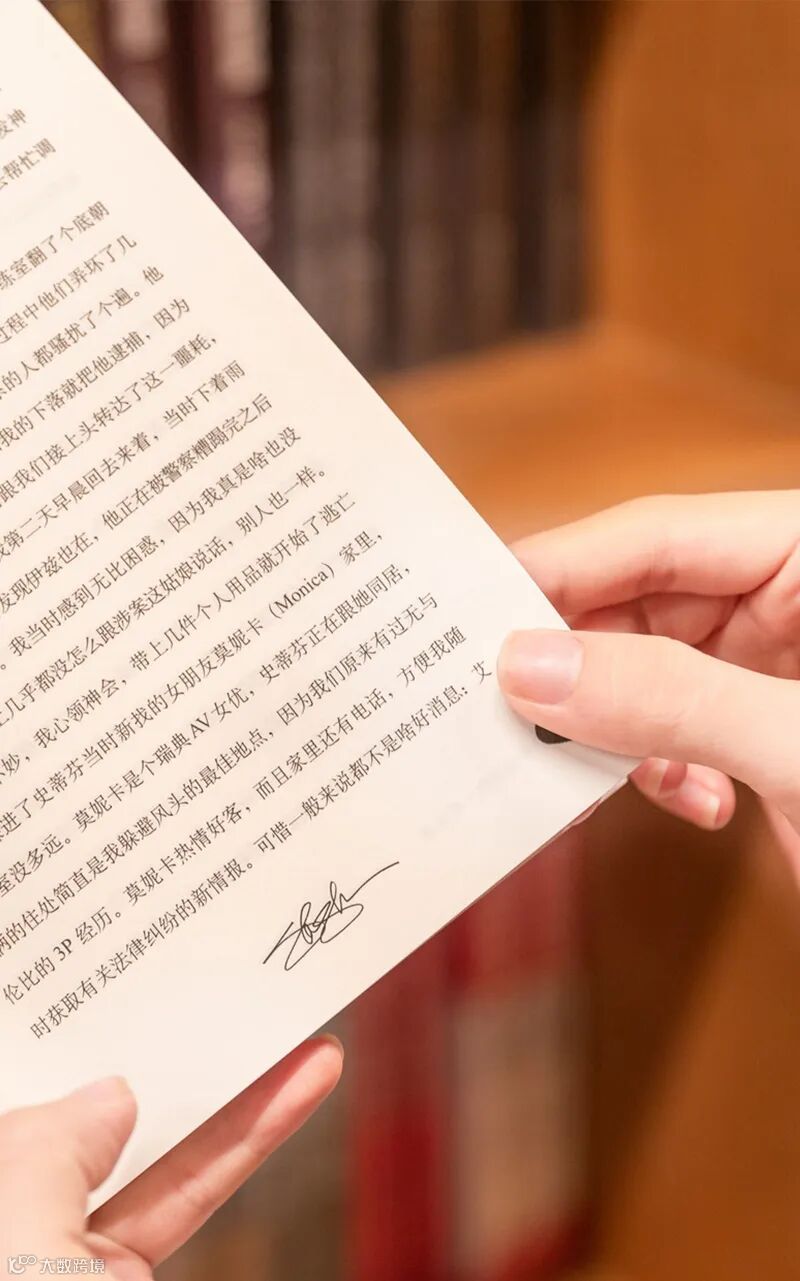 发神
去帮忙调
练室翻了个底朝
过程中他们弄坏了几
的人都骚扰了个遍。他
我的下落就把他逮捕，因为
跟我们接上头转达了这一噩耗，
第二天早晨回去来着，当时下着雨
发现伊兹也在，他正在被警察糟蹋完之后
。我当时感到无比困惑，因为我真是啥也没
上几乎都没怎么跟涉案这姑娘说话，别人也一样。
妙，我心领神会，带上几件个人用品就开始了逃亡
进了史蒂芬当时新找的女朋友莫妮卡（Monica）家里，
室没多远。莫妮卡是个瑞典AV女优，史蒂芬正在跟她同居，
俩的住处简直是我躲避风头的最佳地点，因为我们原来有过无与
伦比的 3P 经历。莫妮卡热情好客，而且家里还有电话，方便我随
时获取有关法律纠纷的新情报。可惜一般来说都不是啥好消息：艾
大数跨境